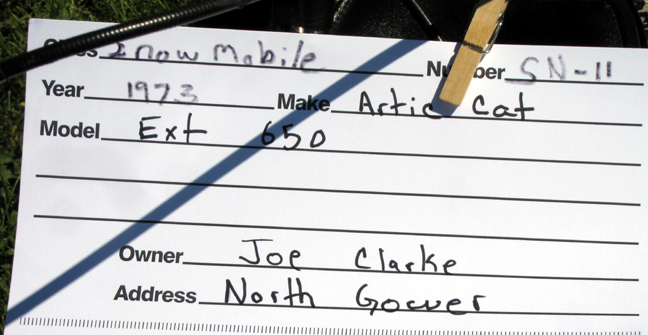 Class Snow Mobile Number SN-11
Year 1973 Make Artic Cat
Model Ext 650
Owner Joe Clarke
Address North Gower